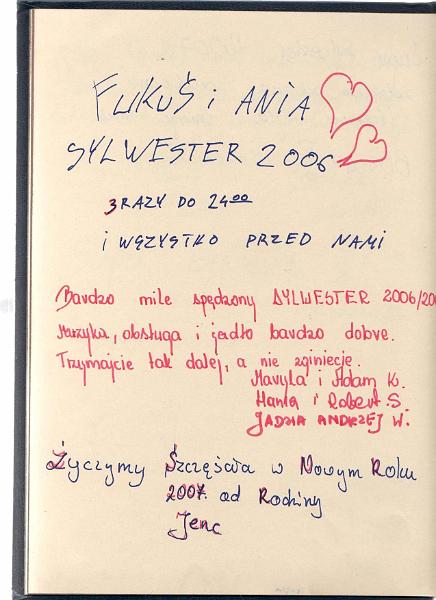 FUKUŚ i ANIA
SYLWESTER 2006
3 RAZY DO 24⁰⁰
i WSZYSTKO PRZED NAMI
Bardzo mile spędzony SYLWESTER 2006/200
Muzyka, obsługa i jadło bardzo dobre.
Trzymajcie tak dalej, a nie zginiecie.
Maryla i Adam K.
Hanka i Robert S.
JADZIA ANDRZEJ W.
Życzymy Szczęścia w Nowym Roku
2007. od Rodziny
Jenc